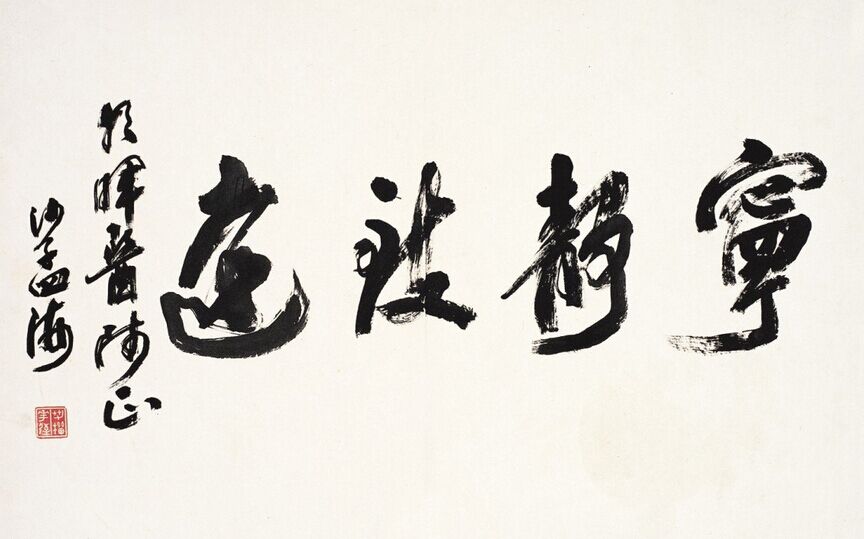 寧靜致遠
朕暉醫師正
沙孟海